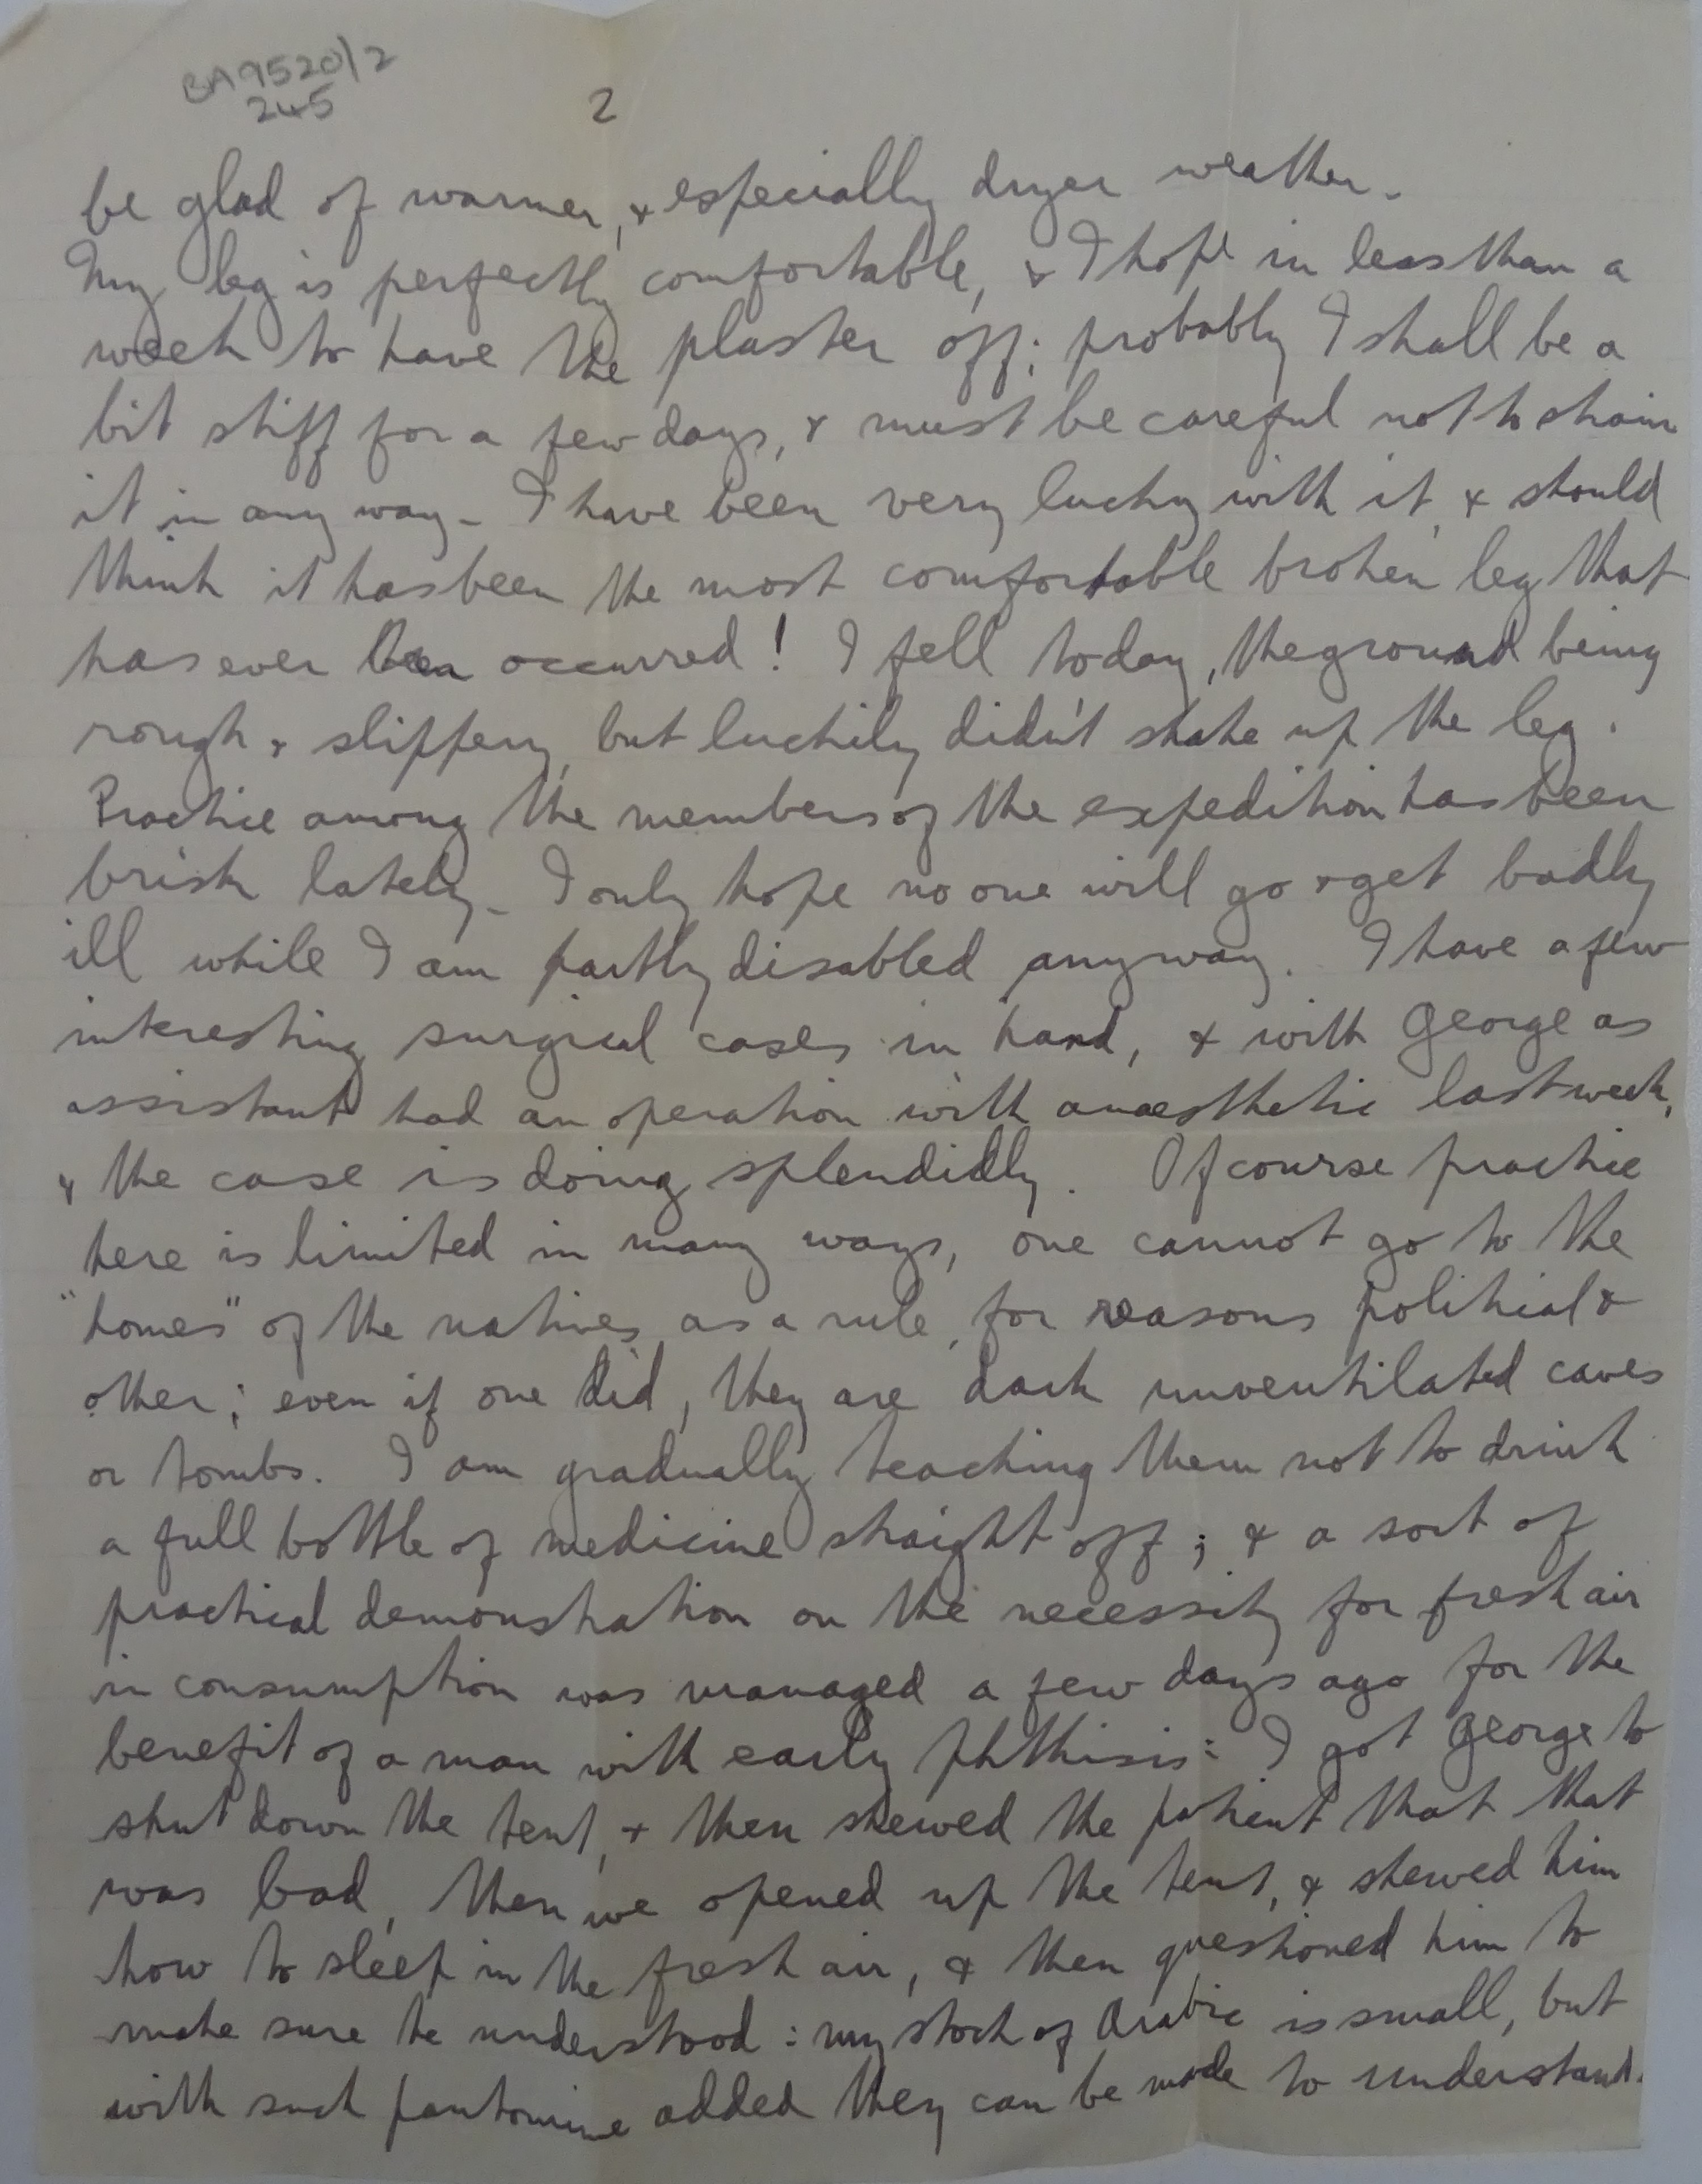 BA9520/2
245
2
be glad of warmer, & especially dryer weather.
My leg is perfectly comfortable, & I hope in less than a
week to have the plaster off; probably I shall be a
bit stiff for a few days, & must be careful not to strain
it in any way. I have been very lucky with it, & should
think it has been the most comfortable broken leg that
has ever been occurred! I fell today, the ground being
rough & slippery, but luckily didn't shake up the leg.
Practice among the members of the expedition has been
brisk lately. I only hope no one will go & get badly
ill while I am partly disabled anyway. I have a few
interesting surgical cases in hand, & with George as
assistant had an operation with anaesthetic last week,
& the case is doing splendidly. Of course practice
here is limited in many ways, one cannot go to the
"homes" of the natives, as a rule, for reasons political &
other; even if one did, they are dark unventilated caves
or tombs. I am gradually teaching them not to drink
a full bottle of medicine straight off; & a sort of
practical demonstration on the necessity for fresh air
in consumption was managed a few days ago for the
benefit of a man with early phthisis: I got George to
shut down the tent, & then shewed the patient that that
was bad, then we opened up the tent, & shewed him
how to sleep in the fresh air, & then questioned him to
make sure he understood: my stock of Arabic is small, but
with such pantomime added they can be made to understand.